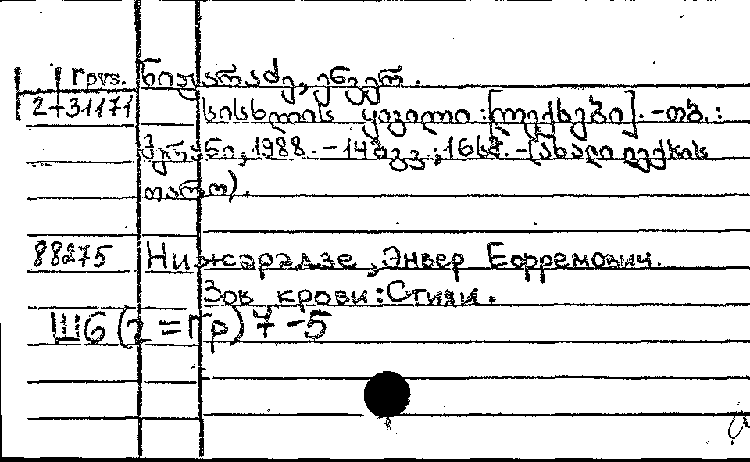 Груз. ნიჟარაძე, ენვერ.
2-31171 სისხლის ყივილი: [ლექსები]. -თბ.:
მერანი, 1988. - 149გვ.; 16სმ. - (ახალი ლექსის
თარო).
88275 Нижарадзе, Энвер Ефремович.
Зов крови: Стихи.
Ш6(2=Гр)7-5